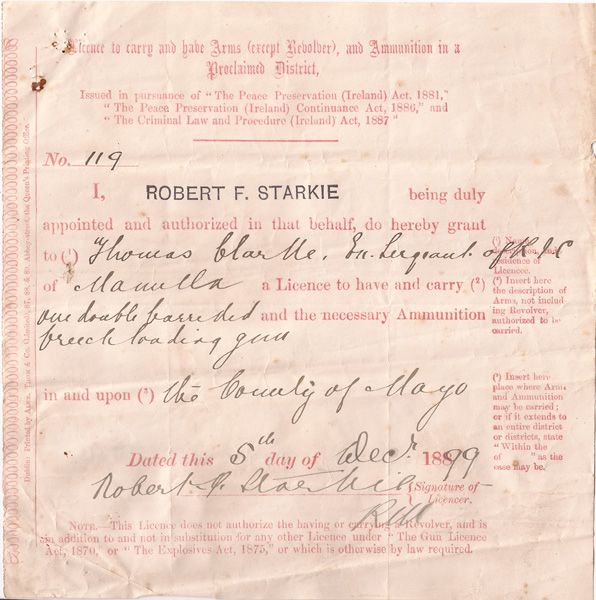 Licence to carry and have Arms (except Revolver), and Ammunition in a
Proclaimed District,
Issued in pursuance of "The Peace Preservation (Ireland) Act, 1881,"
"The Peace Preservation (Ireland) Continuance Act, 1886," and
"The Criminal Law and Procedure (Ireland) Act, 1887"
No. 119
I, ROBERT F. STARKIE being duly
appointed and authorized in that behalf, do hereby grant
to (¹) Thomas Clarke, Ex. Sergeant of R.I.C
of Manulla a Licence to have and carry (²)
one double barrelled and the necessary Ammunition
breech loading gun
in and upon (³) the County of Mayo
Dated this 5th day of Decr. 1899
Robert F. Starkie
Signature of
Licencer.
RM
NOTE.—This Licence does not authorize the having or carrying a Revolver, and is
in addition to and not in substitution for any other Licence under "The Gun Licence
Act, 1870," or "The Explosives Act, 1875," or which is otherwise by law required.
(¹)
residence of
Licencee.
(²) Insert here
the description of
Arms, not includ-
ing Revolver,
authorized to be
carried.
(³) Insert here
place where Arms
and Ammunition
may be carried;
or if it extends to
an entire district
or districts, state
"Within the
of " as the
case may be.
Dublin: Printed by Alex. Thom & Co. (Limited), 87, 88, & 89, Abbey-street, the Queen's Printing Office.